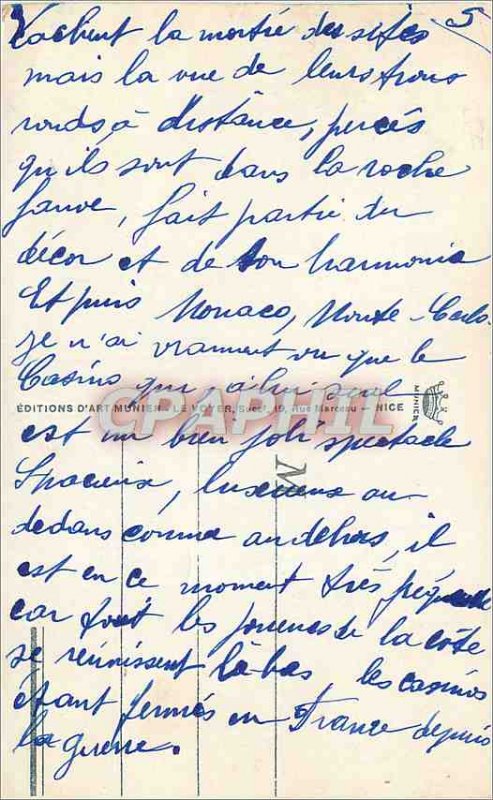 5
cachent la moitié des sites
mais la vue de leurs trous
ronds à distance, percés
qu'ils sont dans la roche
fauve, fait partie du
décor et de son harmonie
Et puis Monaco, Monte-Carlo
je n'ai vraiment vu que le
Casino qui à lui seul
EDITIONS D'ART MUNIER - LE HOYER, Succr, 19, Rue Marceau — NICE
MUNIER
CPAPHIL
est un bien joli spectacle
Spacieux, luxueux au-
dedans comme au dehors, il
est en ce moment très
car tout les joueurs de la côte
se réunissent là-bas, les casinos
étant fermés en France depuis
la guerre.